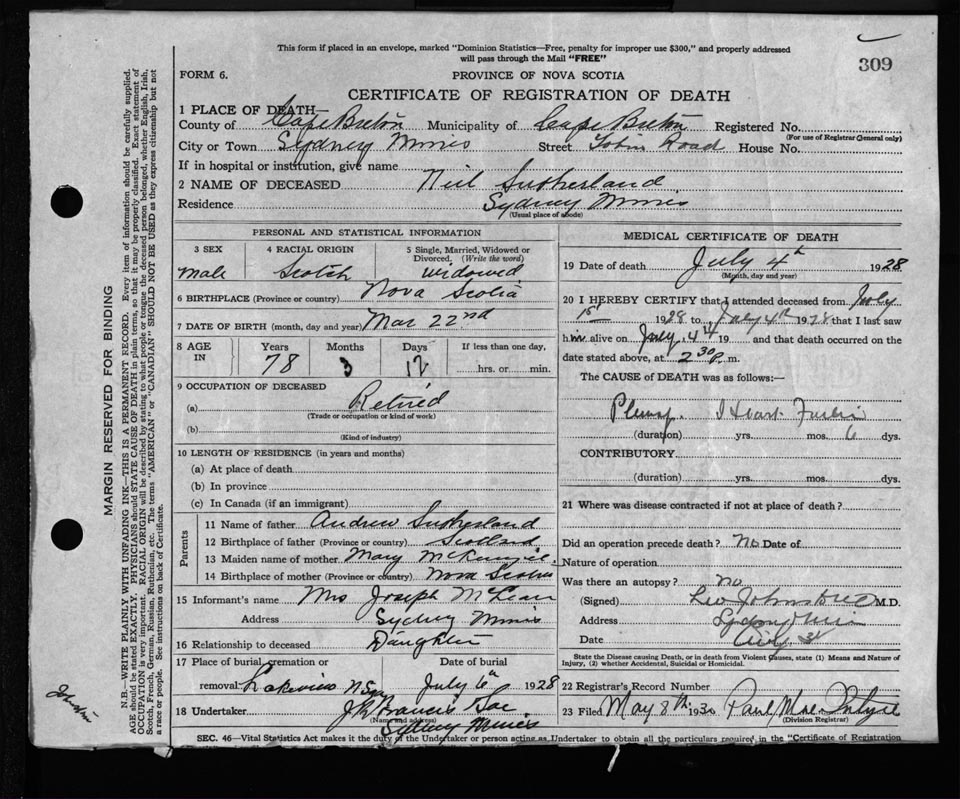 This form if placed in an envelope, marked "Dominion Statistics—Free, penalty for improper use $300," and properly addressed
will pass through the Mail "FREE"
309
FORM 6.
PROVINCE OF NOVA SCOTIA
CERTIFICATE OF REGISTRATION OF DEATH
1 PLACE OF DEATH—
County of Cape Breton Municipality of Cape Breton Registered No.
(For use of Registrar General only)
City or Town Sydney Mines Street Johns Road House No.
If in hospital or institution, give name
2 NAME OF DECEASED Neil Sutherland
Residence Sydney Mines
(Usual place of abode)
PERSONAL AND STATISTICAL INFORMATION
3 SEX male
4 RACIAL ORIGIN Scotch
5 Single, Married, Widowed or Divorced, (Write the word) widowed
6 BIRTHPLACE (Province or country) Nova Scotia
7 DATE OF BIRTH (month, day and year) Mar 22nd
8 AGE IN Years Months Days If less than one day,
78 3 12 hrs. or min.
9 OCCUPATION OF DECEASED
(a) Retired
(Trade or occupation or kind of work)
(b)
(Kind of industry)
10 LENGTH OF RESIDENCE (in years and months)
(a) At place of death
(b) In province
(c) In Canada (if an immigrant)
Parents
11 Name of father Andrew Sutherland
12 Birthplace of father (Province or country) Scotland
13 Maiden name of mother Mary McKenzie
14 Birthplace of mother (Province or country) Nova Scotia
15 Informant's name Mrs Joseph McLean
Address Sydney Mines
16 Relationship to deceased Daughter
17 Place of burial, cremation or Date of burial
removal Lakeview July 6th 1928
18 Undertaker J R Francis
(Name and address)
Sydney Mines
MEDICAL CERTIFICATE OF DEATH
19 Date of death July 4th 1928
(Month, day and year)
20 I HEREBY CERTIFY that I attended deceased from July
1st 1928 to July 4th 1928 that I last saw
him alive on July 4th 19 and that death occurred on the
date stated above, at 2 30 P. m.
The CAUSE OF DEATH was as follows:—
Pleurisy. Heart Failure
(duration) yrs. mos. 6 dys.
CONTRIBUTORY
(duration) yrs. mos. dys.
21 Where was disease contracted if not at place of death?
Did an operation precede death? No Date of
Nature of operation
Was there an autopsy? no
(Signed) M.D.
Address Sydney Mines
Date
State the Disease causing Death, or in death from Violent Causes, state (1) Means and Nature of
Injury, (2) whether Accidental, Suicidal or Homicidal.
22 Registrar's Record Number
23 Filed May 8th 1930
(Division Registrar)
SEC. 46—Vital Statistics Act makes it the duty of the Undertaker or person acting as Undertaker to obtain all the particulars required in the "Certificate of Registration
MARGIN RESERVED FOR BINDING
N.B.—WRITE PLAINLY WITH UNFADING INK—THIS IS A PERMANENT RECORD. Every item of information should be carefully supplied.
AGE should be stated EXACTLY. PHYSICIANS should STATE CAUSE OF DEATH in plain terms, so that it may be properly classified. Exact statement of
OCCUPATION is very important. RACIAL ORIGIN will be described by stating to what people or tongue the deceased person belonged, whether English, Irish,
Scotch, French, German, Russian, Ruthenian, etc. The terms "AMERICAN" or "CANADIAN" SHOULD NOT BE USED as they express citizenship but not
a race or people. See instructions on back of Certificate.
Johnstin